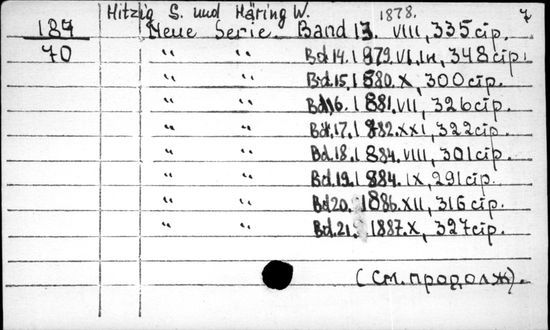 Hitzig S. und Häring W. 1878. 7
187 Neue Serie. Band 13. VIII, 335 стр.
70 " " Bd. 14. 1879. VI, 348 стр.
" " Bd. 15. 1880. X, 300 стр.
" " Bd. 16. 1881. VII, 326 стр.
" " Bd. 17. 1882. XXI, 322 стр.
" " Bd. 18. 1884. VIII, 301 стр.
" " Bd. 19. 1884. IX, 291 стр.
" " Bd. 20. 1886. XII, 316 стр.
" " Bd. 21. 1887. X, 327 стр.
(См. продолж).